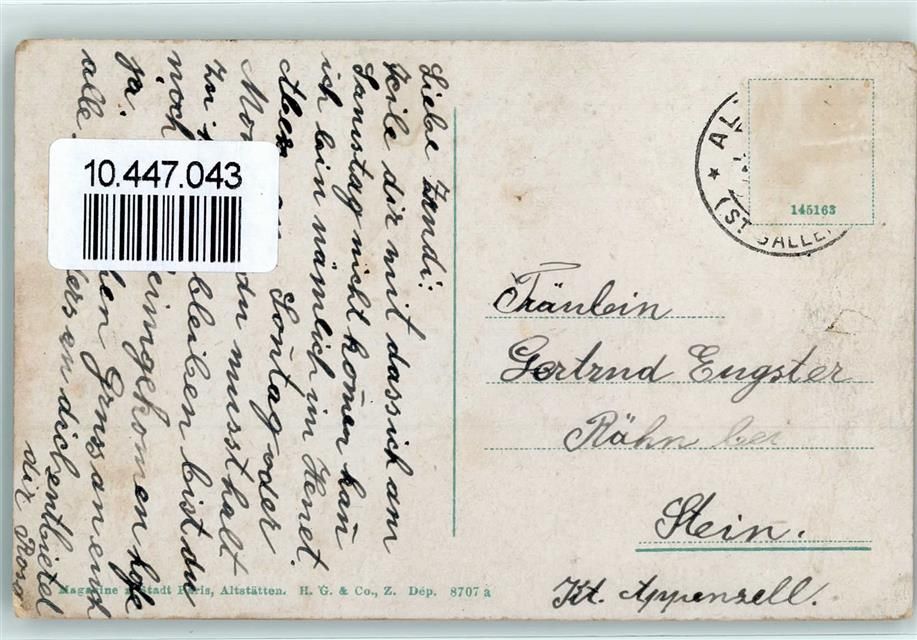 Liebe Trudi:
Teile dir mit dass ich am
Samstag nicht kom̄en kan̄
ich bin nämlich im Heuet.
Aber Son̄tag oder
Mo du musst halt
zu bleiben bist du
noch eingekomen hoffe
ja. Gruss an euch
alle. an dich entbietet
dir Rosa
10.447.043
AL
(ST. GALLEN
145163
Fräulein
Gertrud Engster
Rähn bei
Stein.
Kt. Appenzell.
Magazine z. Stadt Paris, Altstätten. H. G. & Co., Z. Dép. 8707 a